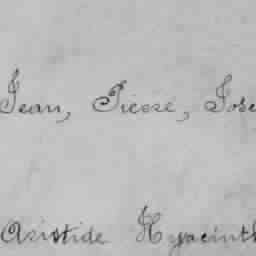 Jean, Pierre, Jose
Aristide Hyacinth